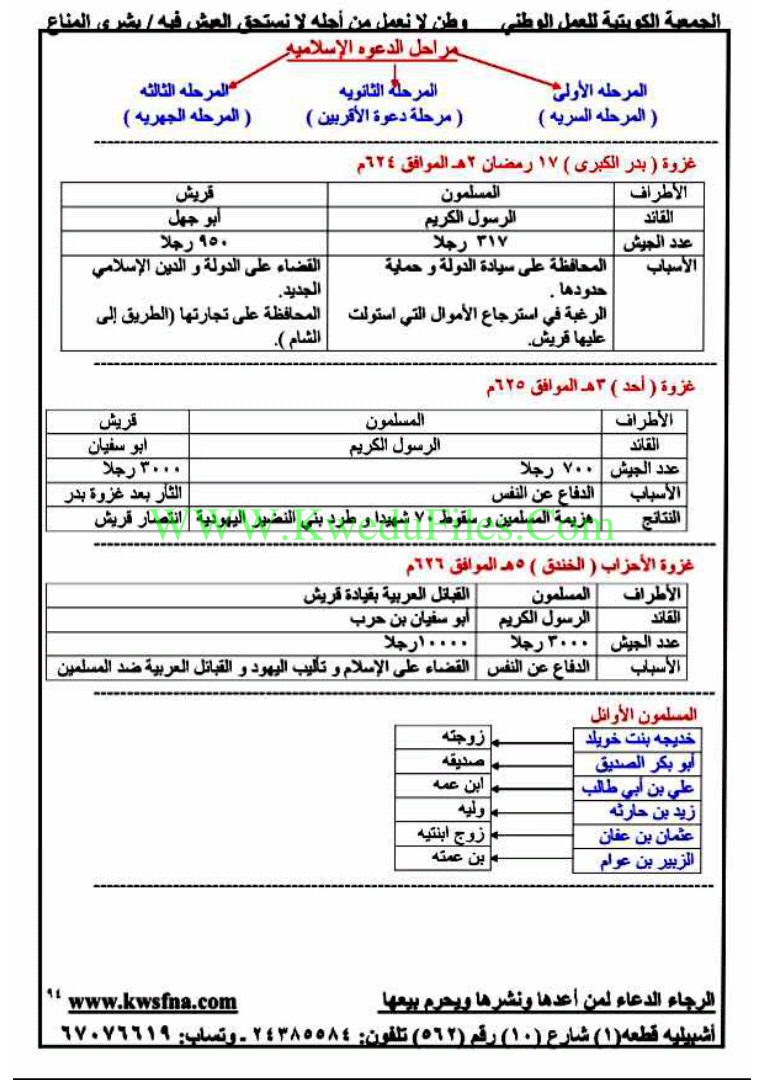 الجمعية الكويتية للعمل الوطني وطن لا نعمل من أجله لا نستحق العيش فيه / بشرى المناع
مراحل الدعوه الإسلاميه
المرحله الأولى المرحلة الثانويه المرحله الثالثه
( المرحله السريه ) ( مرحلة دعوة الأقربين ) ( المرحله الجهريه )
غزوة ( بدر الكبرى ) ١٧ رمضان ٢هـ الموافق ٦٢٤م
الأطراف المسلمون قريش
القائد الرسول الكريم أبو جهل
عدد الجيش ٣١٧ رجلا ٩٥٠ رجلا
الأسباب المحافظة على سيادة الدولة و حماية القضاء على الدولة و الدين الإسلامي
حدودها . الجديد.
الرغبة في استرجاع الأموال التي استولت المحافظة على تجارتها (الطريق إلى
عليها قريش. الشام ).
غزوة ( أحد ) ٣هـ الموافق ٦٢٥م
الأطراف المسلمون قريش
القائد الرسول الكريم ابو سفيان
عدد الجيش ٧٠٠ رجلا ٣٠٠٠ رجلا
الأسباب الدفاع عن النفس الثأر بعد غزوة بدر
النتائج هزيمة المسلمين و سقوط ٧٠ شهيدا و طرد بني النضير اليهودية انتصار قريش
WWW.KweduFiles.Com
غزوة الأحزاب ( الخندق ) ٥هـ الموافق ٦٢٦م
الأطراف المسلمون القبائل العربية بقيادة قريش
القائد الرسول الكريم أبو سفيان بن حرب
عدد الجيش ٣٠٠٠ رجلا ١٠٠٠٠رجلا
الأسباب الدفاع عن النفس القضاء على الإسلام و تأليب اليهود و القبائل العربية ضد المسلمين
المسلمون الأوائل
خديجه بنت خويلد زوجته
أبو بكر الصديق صديقه
علي بن أبي طالب ابن عمه
زيد بن حارثه وليه
عثمان بن عفان زوج ابنتيه
الزبير بن عوام بن عمته
الرجاء الدعاء لمن أعدها ونشرها ويحرم بيعها www.kwsfna.com ٩٤
أشبيليه قطعه(١) شارع (١٠) رقم (٥٦٢) تلفون: ٢٤٣٨٥٥٨٤ - وتساب: ٦٧٠٧٦٦١٩